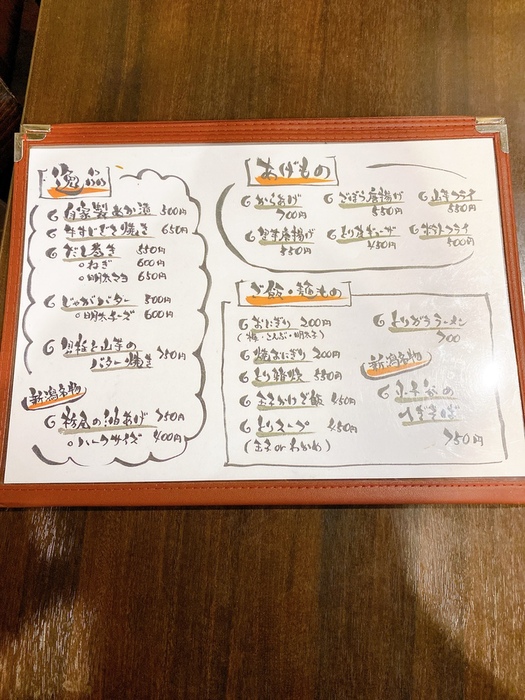 逸品
自家製ぬか漬 500円
牛すじねぎ焼き 650円
だし巻き 550円
ねぎ 600円
明太マヨ 650円
じゃがバター 500円
明太チーズ 600円
山芋の
バター焼き 750円
新潟名物
栃尾の油あげ 750円
ハーフサイズ 400円
あげもの
からあげ
700円
ごぼう唐揚げ
550円
山芋フライ
550円
唐揚げ
550円
450円
フライ
500円
ご飯・麺もの
おにぎり 200円
(梅・こんぶ・明太子)
焼おにぎり 200円
とり雑炊 550円
玉子かけご飯 450円
とりスープ 450円
(玉子orわかめ)
とりガララーメン
700
新潟名物
へぎそば
750円